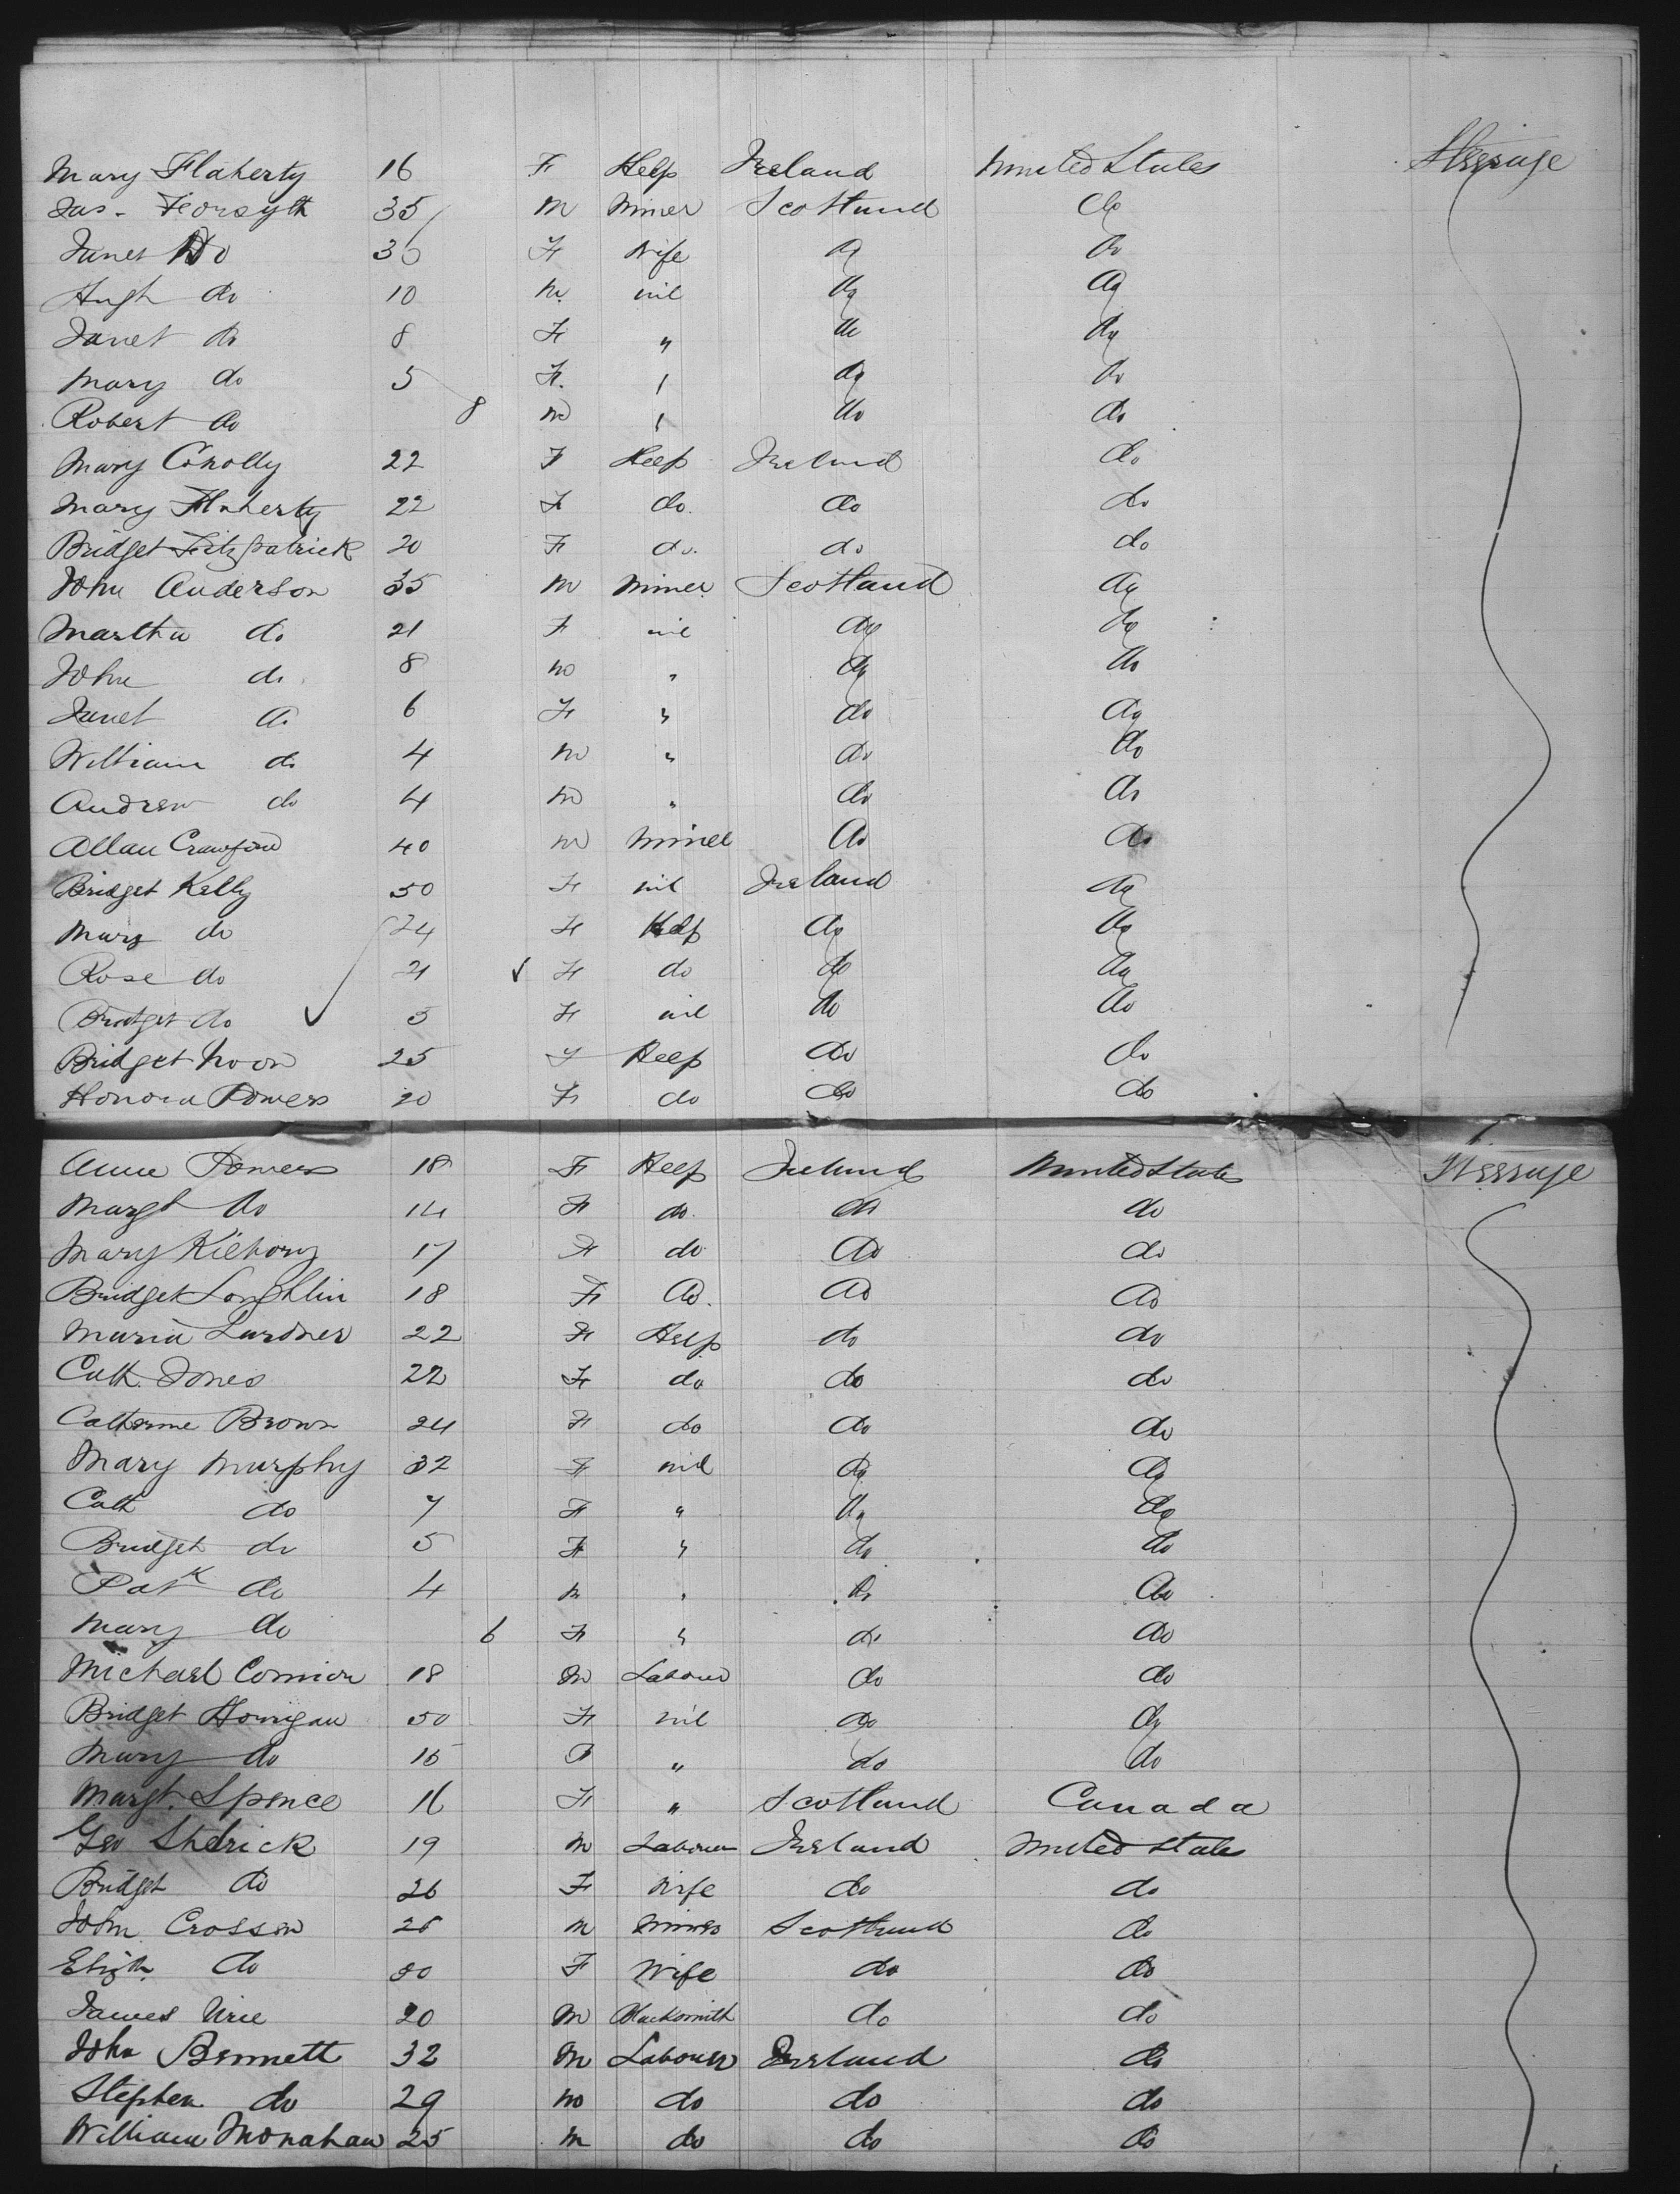 Mary Flaherty 16 F Help Ireland United States Steerage
Jas. Forsyth 35 M Miner Scotland do
Janet Do 36 F Wife do do
Hugh do 10 M. nil do do
Janet do 8 F " do do
Mary do 5 F. " do do
Robert do 8 M " do do
Mary Conolly 22 F Help Ireland do
Mary Flaherty 22 F do. do do
Bridget Fitzpatrick 20 F do. do do
John Anderson 35 M Miner Scotland do
Martha do 21 F nil do do
John do 8 M " do do
Janet do 6 F " do do
William do 4 M " do do
Andrew do 4 M " do do
Allan Crawford 40 M Miner do do
Bridget Kelly 50 F nil Ireland do
Mary do 24 F Help do do
Rose do 21 F do do do
Bridget do 5 F nil do do
Bridget Noon 25 F Help do do
Honora Powers 20 F do do do
Anne Powers 18 F Help Ireland United States Steerage
Margt do 14 F do. do do
Mary 17 F do do do
Bridget Loughlin 18 F do. do do
Maria Lardner 22 F Help do do
Cath. Jones 22 F do do do
Catherine Brown 24 F do do do
Mary Murphy 32 F nil do do
Cath do 7 F " do do
Bridget do 5 F " do do
Patk do 4 M " do do
Mary do 6 F " do do
Michael Connior 18 M Labour do do
Bridget Horrigan 50 F nil do do
Mary do 15 F " do do
Margt. Spence 16 F " Scotland Canada
Geo 19 M Labourer Ireland United States
Bridget do 26 F Wife do do
John Crosson 26 M Miner Scotland do
Elizth. do 20 F Wife do do
James Urie 20 M Blacksmith do do
John Bennett 32 M Labourer Ireland do
Stephen do 29 M do do do
William Monahan 25 M do do do